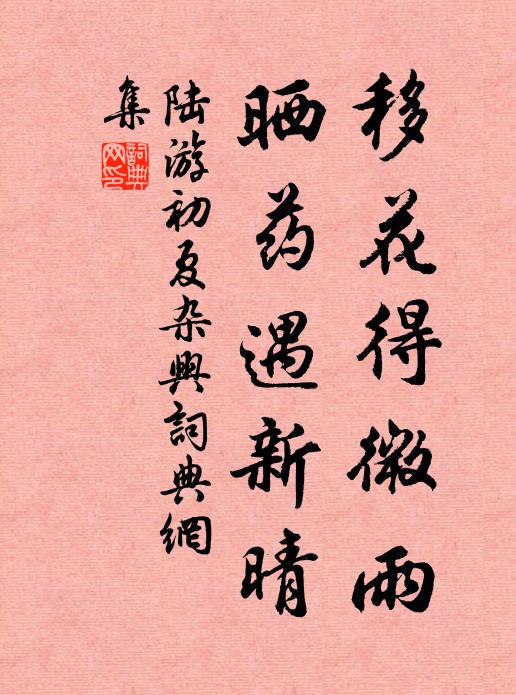 移花得微雨
晒药遇新晴
陆游初夏杂興詞典網
集
詞典网印